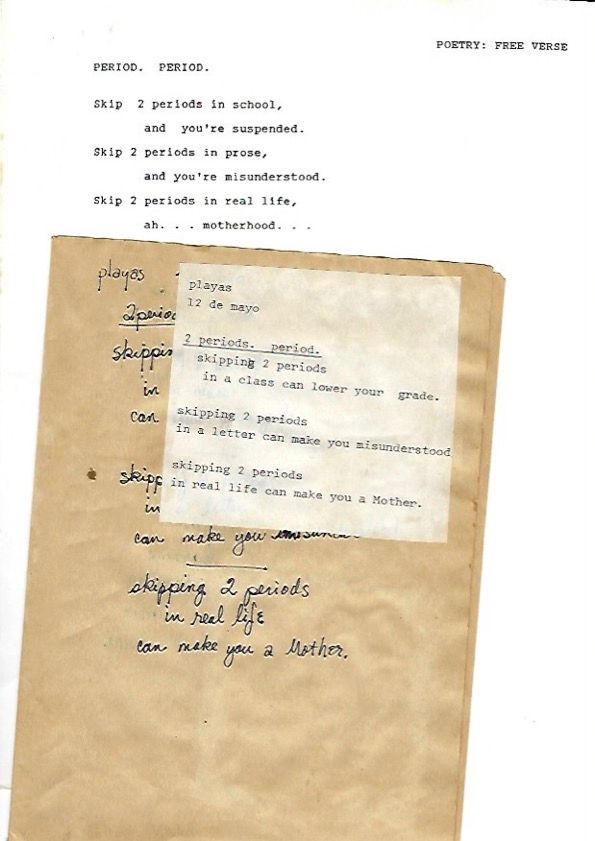 POETRY: FREE VERSE
PERIOD. PERIOD.
Skip 2 periods in school,
and you're suspended.
Skip 2 periods in prose,
and you're misunderstood.
Skip 2 periods in real life,
ah. . . motherhood. . .
playas
playas
12 de mayo
2 periods. period.
skipping 2 periods
in a class can lower your grade.
skipping 2 periods
in a letter can make you misunderstood
skipping 2 periods
in real life can make you a Mother.
in
can
in
can make you
skipping 2 periods
in real life
can make you a Mother.